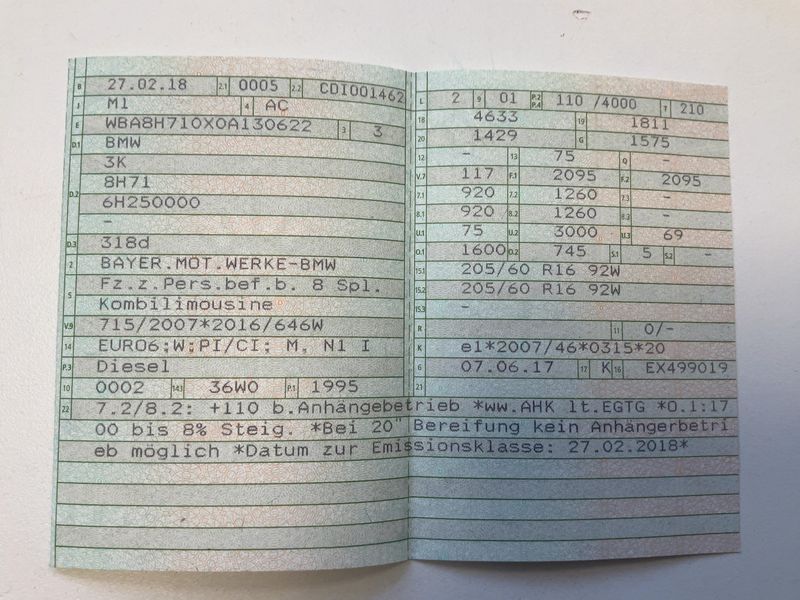 B 27.02.18 2.1 0005 2.2 CDI001462
J M1 4 AC
E WBA8H710X0A130622 3 3
D.1 BMW
3K
D.2 8H71
6H250000
-
D.3 318d
2 BAYER.MOT.WERKE-BMW
5 Fz.z.Pers.bef.b. 8 Spl.
Kombilimousine
V.9 715/2007*2016/646W
14 EURO6;W;PI/CI; M, N1 I
P.3 Diesel
10 0002 14.1 36W0 P.1 1995
L 2 9 01 P.2 P.4 110 /4000 T 210
18 4633 19 1811
20 1429 G 1575
12 - 13 75 Q -
V.7 117 F.1 2095 F.2 2095
7.1 920 7.2 1260 7.3 -
8.1 920 8.2 1260 8.3 -
U.1 75 U.2 3000 U.3 69
O.1 1600 O.2 745 S.1 5 S.2 -
15.1 205/60 R16 92W
15.2 205/60 R16 92W
15.3 -
R 11 0/-
K e1*2007/46*0315*20
6 07.06.17 17 K 16 EX499019
21
22 7.2/8.2: +110 b.Anhängebetrieb *ww.AHK lt.EGTG *0.1:17
00 bis 8% Steig. *Bei 20" Bereifung kein Anhängerbetri
eb möglich *Datum zur Emissionsklasse: 27.02.2018*